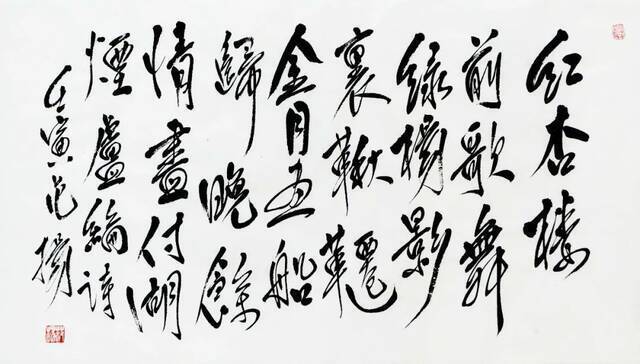 红杏楼
前歌舞
绿楊影
裏鞦韆
金月画船
歸晚餘
情盡付湖
煙盧綸詩
壬寅范揚